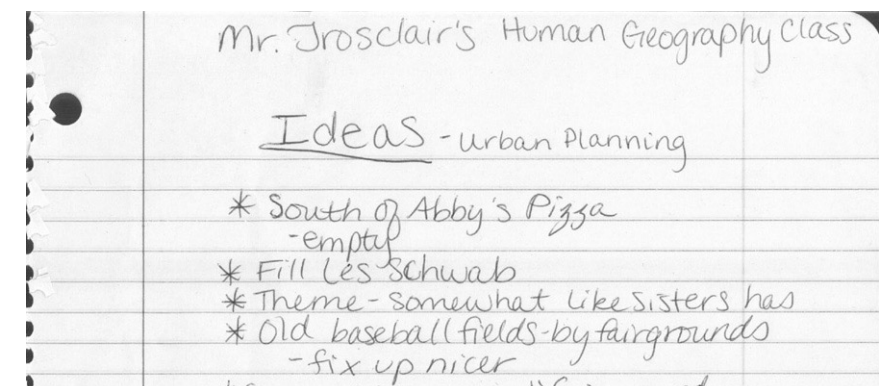 Mr. Trosclair's Human Geography Class
Ideas - urban Planning
* South of Abby's Pizza
-empty
* Fill Les Schwab
* Theme - somewhat like Sisters has
* Old baseball fields - by fairgrounds
- fix up nicer